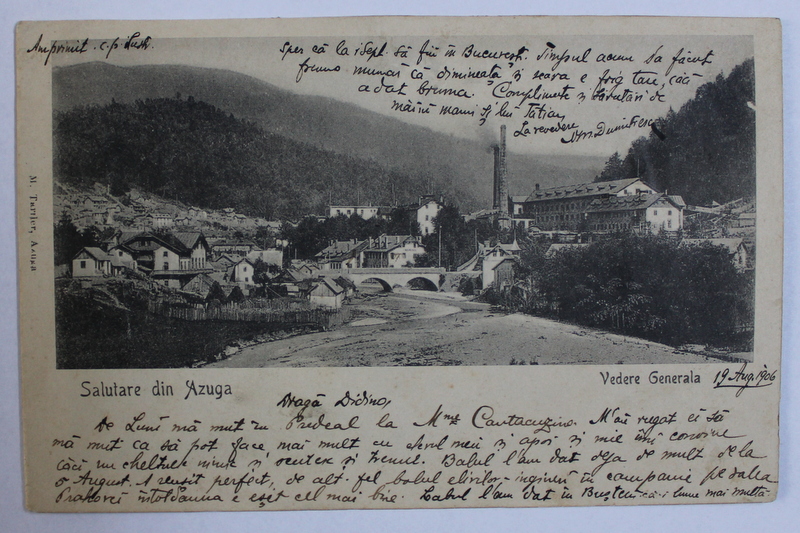 Am primit c.p. ilustr.
Sper că la 1 Sept. să fiu în București. Timpul acum s'a făcut
frumos numai că dimineața și seara e frig tare, căci
a dat bruma. Complimente și sărutări de
mâini mamii și lui Tatian
La revedere
Dumitrescu
M. Turtler, Azuga
Salutare din Azuga
Vedere Generala
19 Aug. 1906
Dragă Didino,
De Luni mă mut în Predeal la Mme Cantacuzino. M'au rugat ei să
mă mut ca să pot face mai mult cu elevul meu și apoi și mie îmi convine
căci nu cheltuesc nimic și scutesc și trenul. Balul l'am dat deja de mult de la
6 August. A reușit perfect, de alt-fel balul elevilor-ingineri în campanie pe valea
Prahovei întotdeauna e eșit cel mai bine. Balul l'am dat în Bușteni că-i lume mai multă.